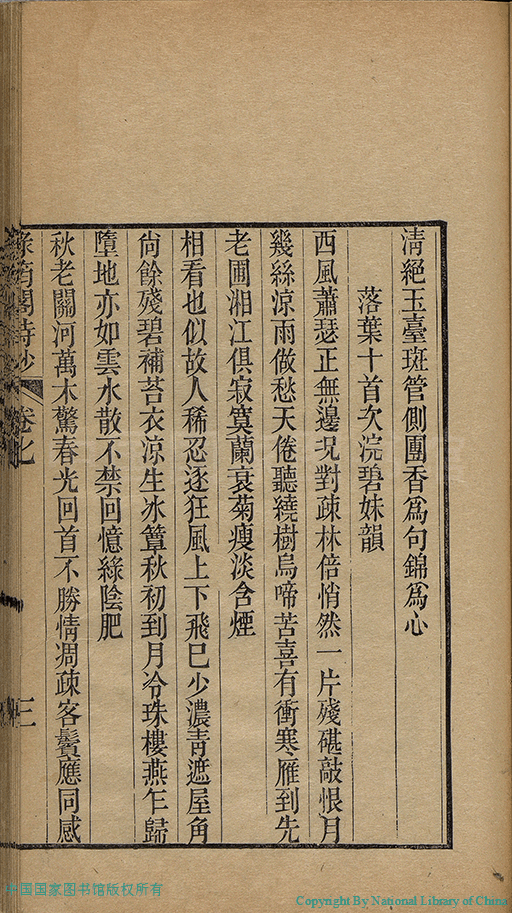 清絕玉臺斑管側團香爲句錦爲心
落葉十首次浣碧妹韻
西風蕭瑟正無邊况對疎林倍悄然一片殘碪敲恨月
幾絲涼雨做愁天倦聽繞樹烏啼苦喜有衝寒雁到先
老圃湘江俱寂寞蘭衰菊瘦淡含煙
相看也似故人稀忍逐狂風上下飛巳少濃靑遮屋角
尙餘殘碧補苔衣涼生冰簟秋初到月冷珠樓燕乍歸
墮地亦如雲水散不禁回憶綠陰肥
秋老關河萬木驚春光回首不勝情凋疎客鬢應同感
閣詩鈔
卷七
三
中国国家图书馆版权所有
Copyright By National Library of China